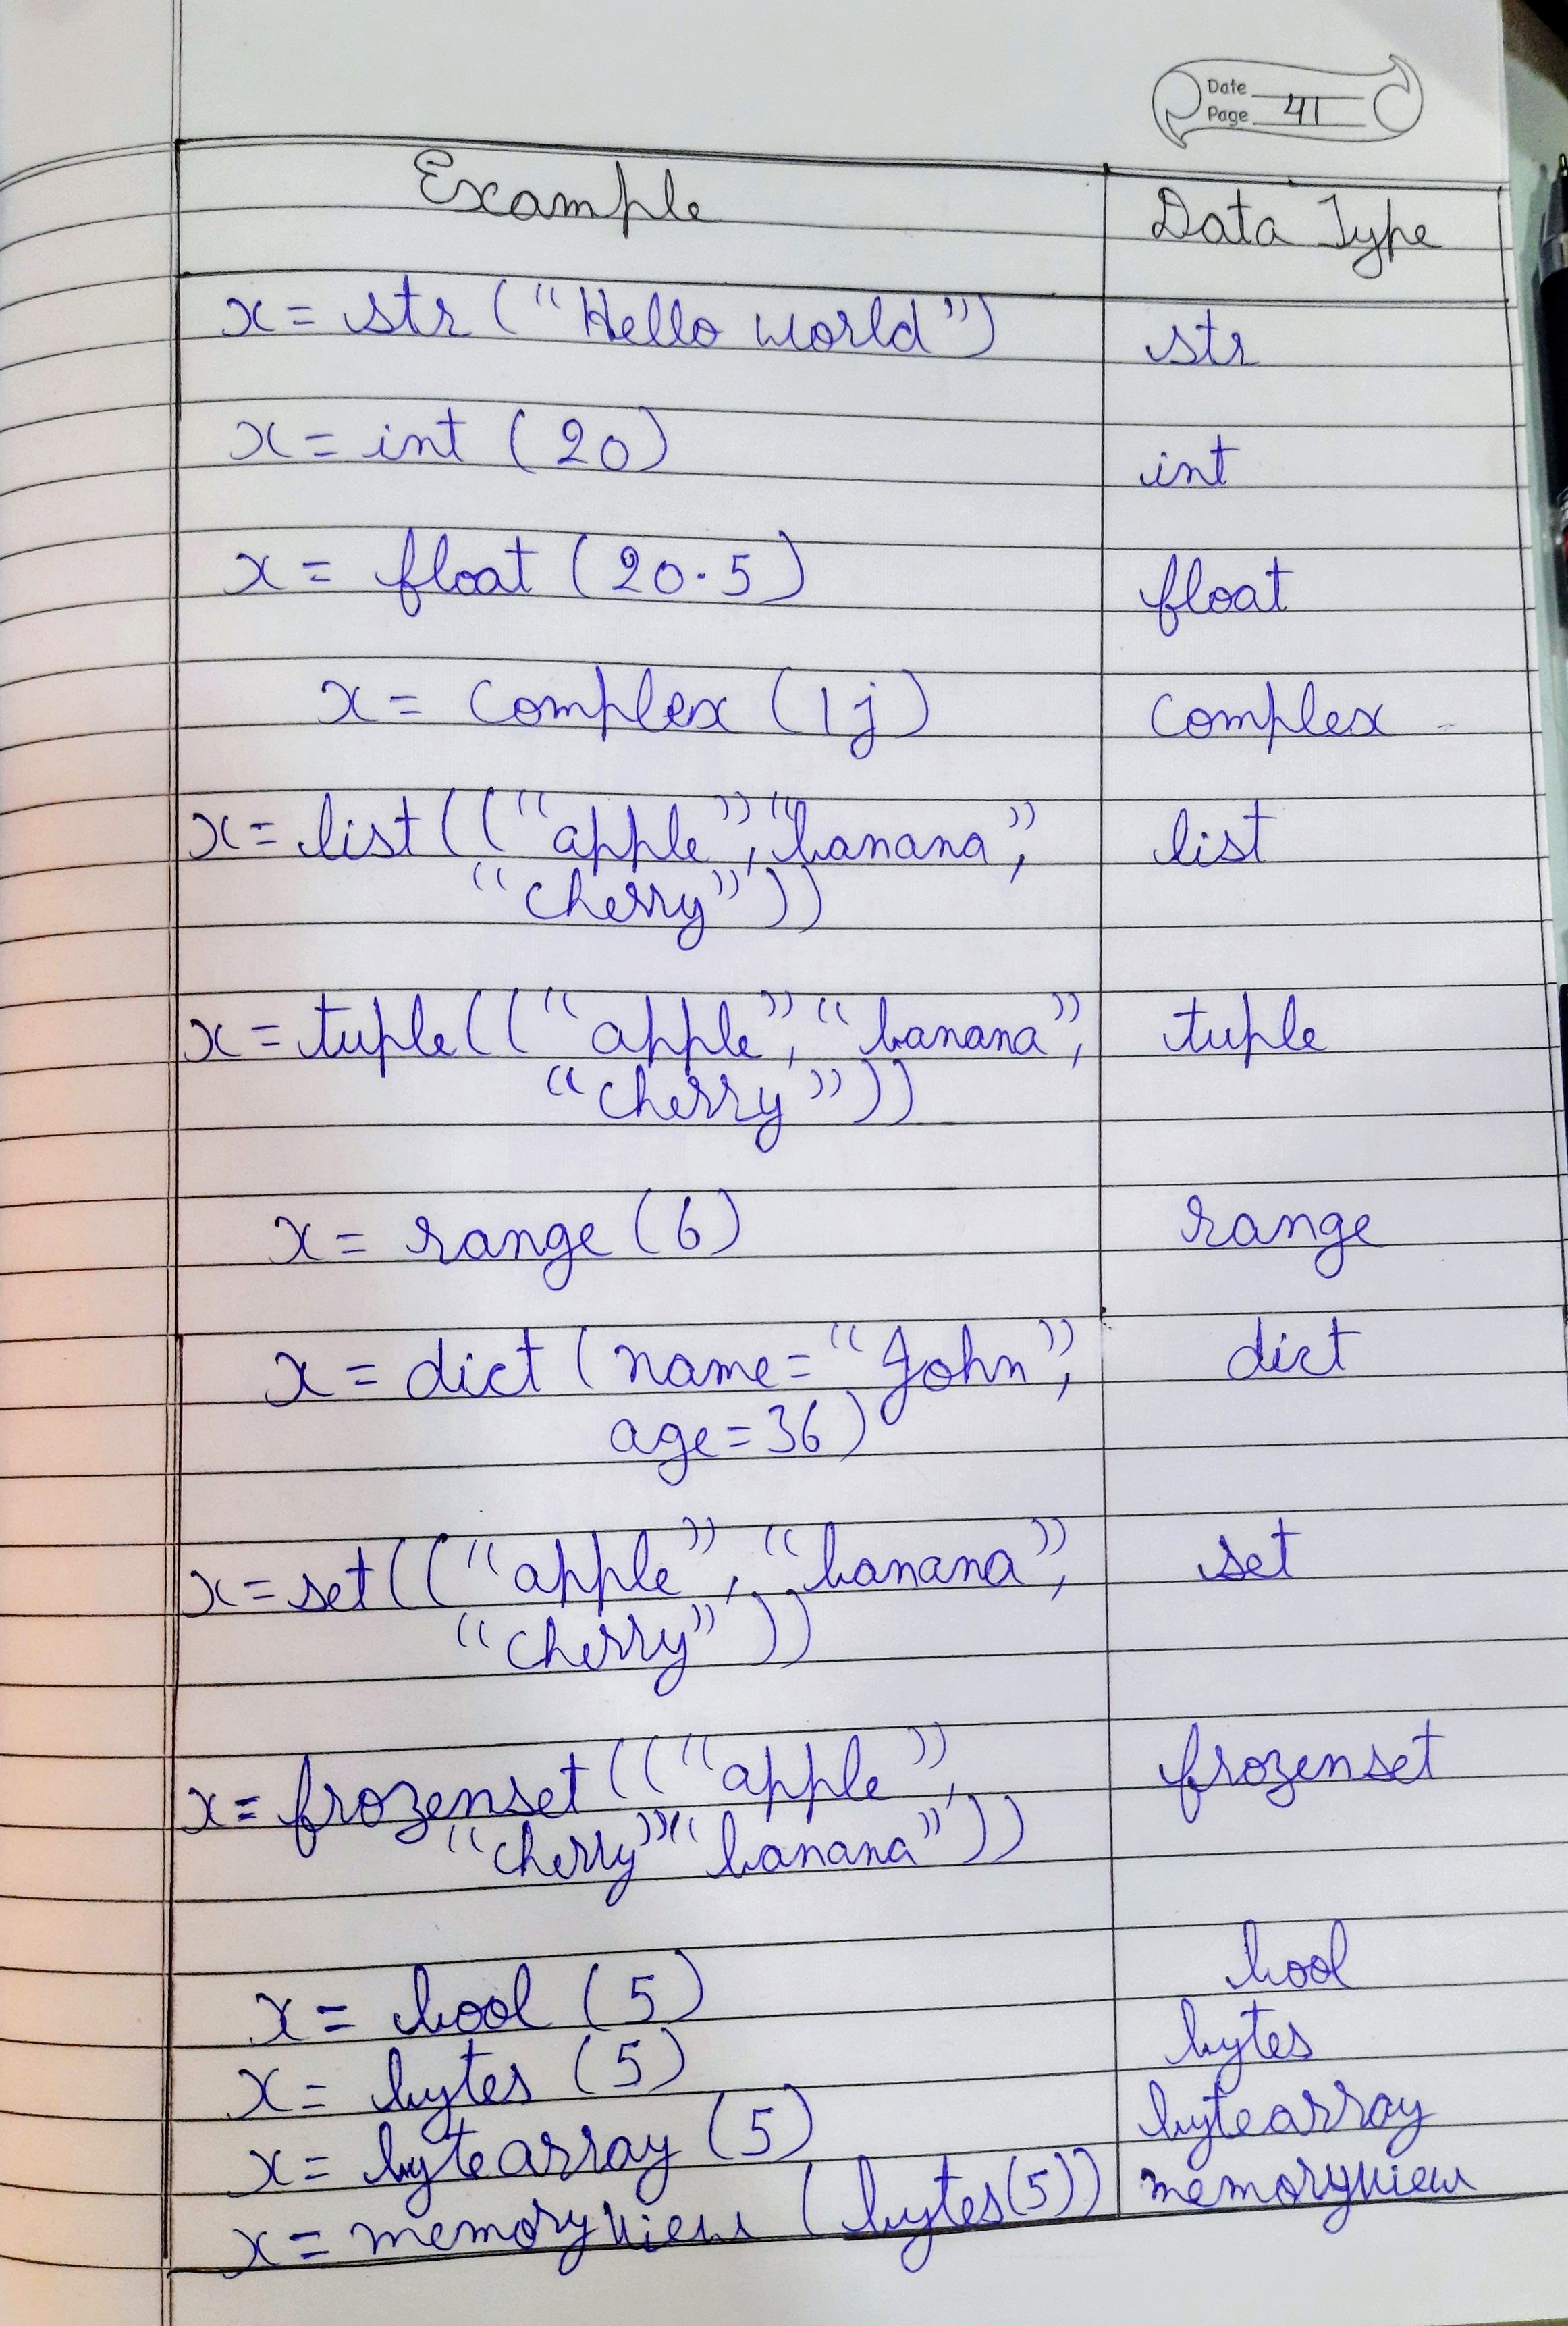 Date
Page 41
Example Data Type
x = str ("Hello world") str
x = int (20) int
x = float (20.5) float
x = complex (1j) complex
x = list(("apple", "banana", list
"cherry"))
x = tuple(("apple", "banana", tuple
"cherry"))
x = range (6) range
x = dict (name = "John", dict
age = 36)
x = set(("apple", "banana", set
"cherry"))
x = frozenset(("apple", frozenset
"cherry", "banana"))
x = bool (5) bool
x = bytes (5) bytes
x = bytearray (5) bytearray
x = memoryview (bytes(5)) memoryview